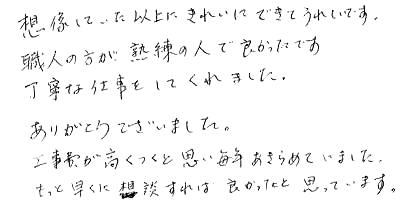 想像していた以上にきれいにできてうれしいです.
職人の方が熟練の人で良かったです
丁寧な仕事をしてくれました.
ありがとうございました。
工事費が高くつくと思い毎年あきらめていました.
もっと早くに想談すれば良かったと思っています。